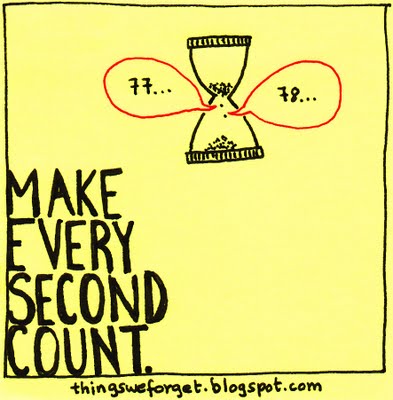 77... 78...
MAKE
EVERY
SECOND
COUNT.
thingsweforget.blogspot.com